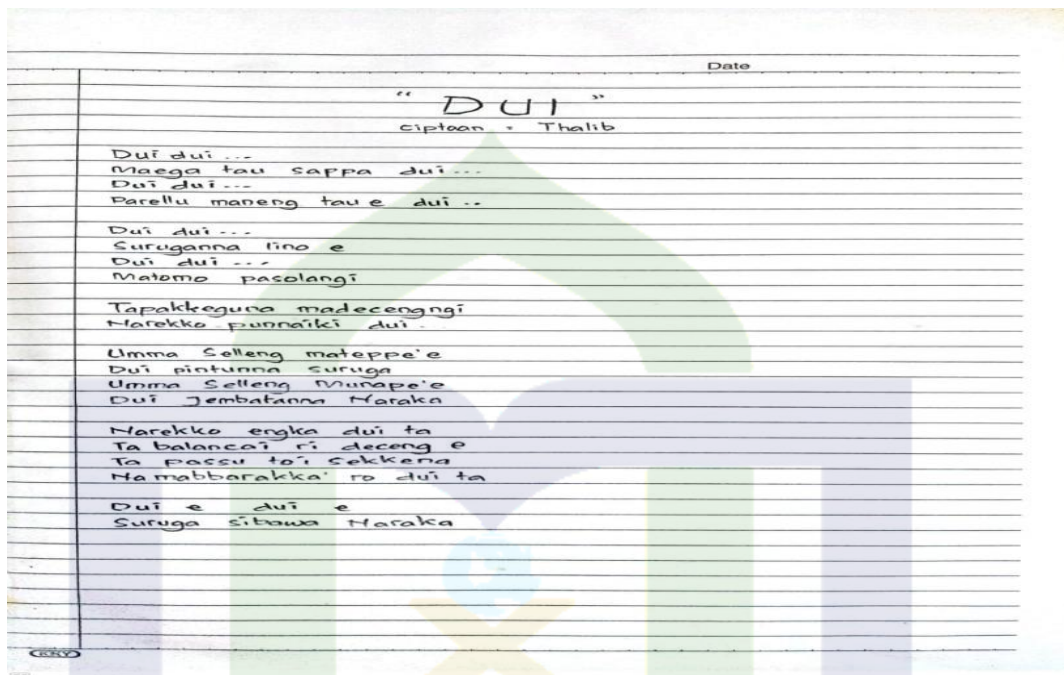 Date
" DUI "
ciptaan : Thalib
Dui dui ...
Maega tau sappa dui ...
Dui dui ...
Parellu maneng tau e dui ..
Dui dui ...
Suruganna lino e
Dui dui ...
Matomo pasolangi
Tapakkeguna madecengngi
Narekko punnaiki dui .
Umma Selleng mateppe'e
Dui pintunna suruga
Umma Selleng Munape'e
Dui Jembatanna Naraka
Narekko engka dui ta
Ta balancai ri deceng e
Ta passu to'i sekkena
Na mabbarakka' ro dui ta
Dui e dui e
Suruga sibawa Naraka
KKY